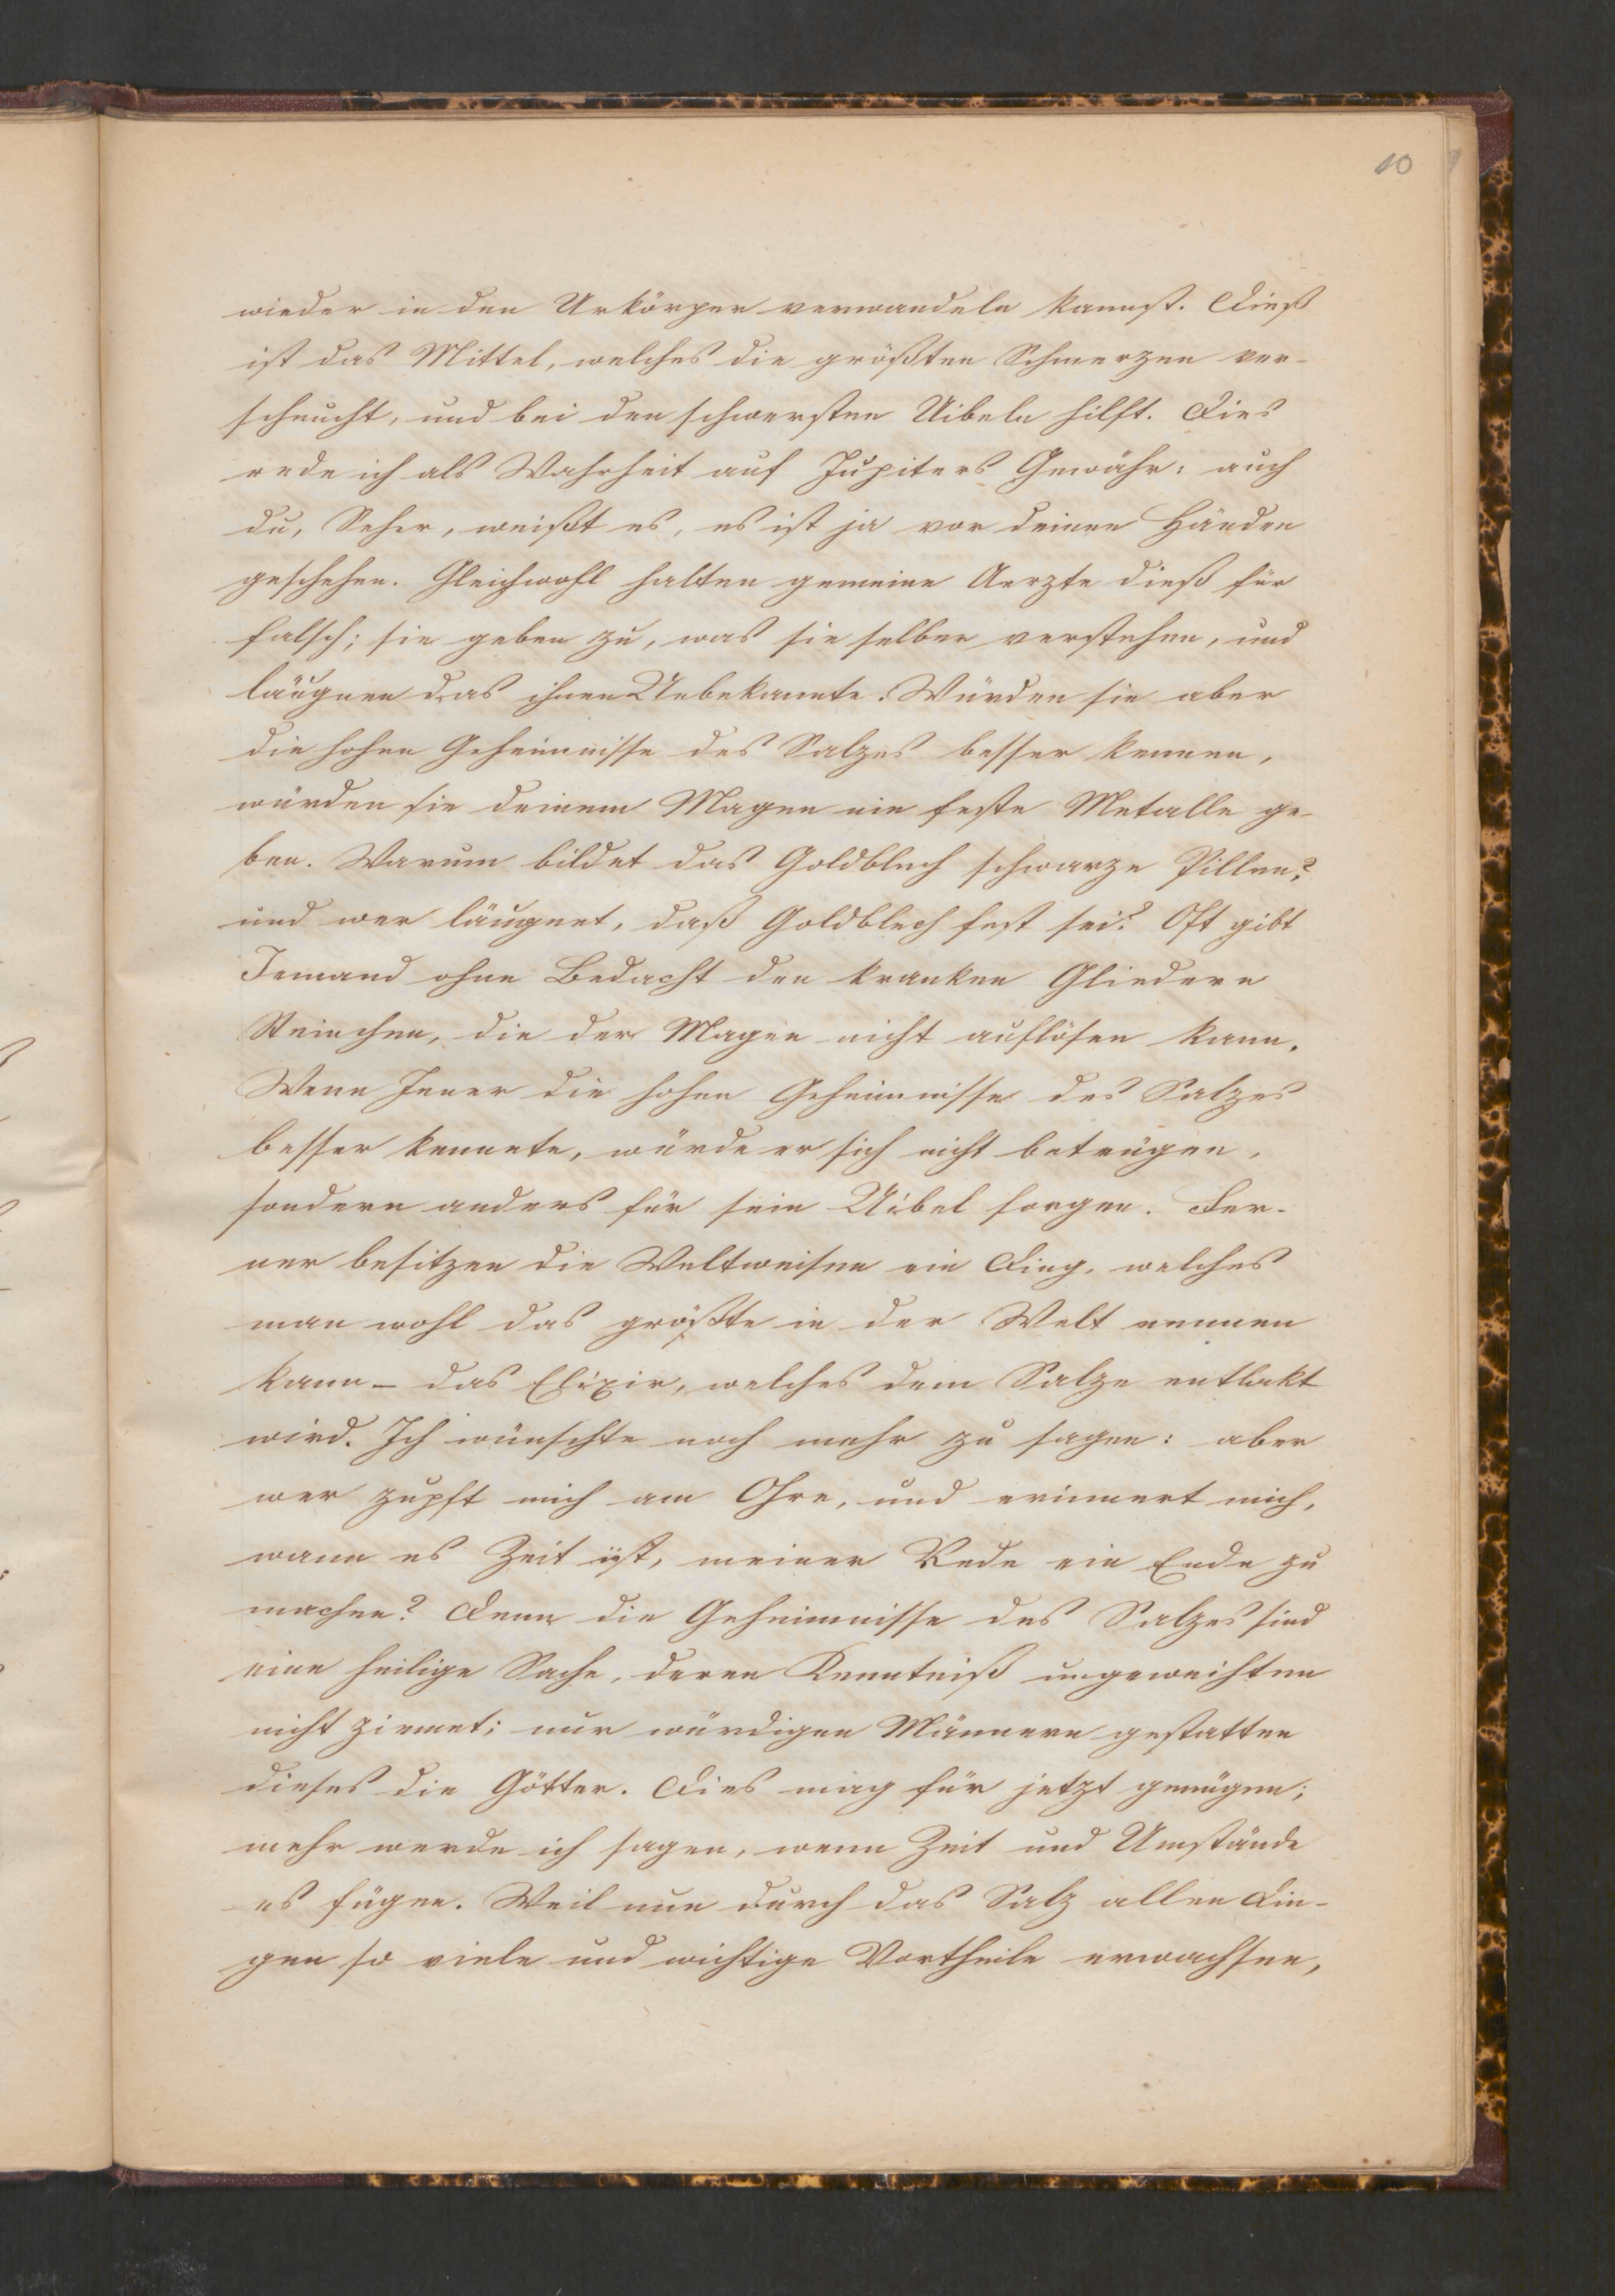 10
wieder in den Urkörper verwandeln kannst. Dieß
ist das Mittel, welches die größten Schmerzen ver-
scheucht, und bei den schwersten Uibeln hilft. Dies
rede ich als Wahrheit auf Jupiters Gewähr: auch
du, Seher, weißt es, es ist ja vor deinen Händen
geschehen. Gleichwohl halten gemeine Aerzte dieß für
falsch; sie geben zu, was sie selber verstehen, und
läugnen das ihnen Unbekannte. Würden sie aber
die hohen Geheimnisse des Salzes besser kennen,
würden sie deinem Magen nie feste Metalle ge-
ben. Warum bildet das Goldblech schwarze Pillen?
und wer läugnet, daß Goldblech fest sei? Oft gibt
Jemand ohne Bedacht den kranken Gliedern
Steinchen, die der Magen nicht auflösen kann.
Wenn Jener die hohen Geheimnisse des Salzes
besser kennete, würde er sich nicht betrügen,
sondern anders für sein Uibel sorgen. Fer-
ner besitzen die Weltweisen ein Ding, welches
man wohl das größte in der Welt nennen
kann – das Elixir, welches dem Salze entlokt
wird. Ich wünschte noch mehr zu sagen: aber
wer zupft mich am Ohre, und erinnert mich,
wann es Zeit ist, meiner Rede ein Ende zu
machen? Denn die Geheimnisse des Salzes sind
eine heilige Sache, deren Kenntniß ungeweihten
nicht ziemet; nur würdigen Männern gestatten
dieses die Götter. Dies mag für jetzt genügen;
mehr werde ich sagen, wenn Zeit und Umstände
es fügen. Weil nun durch das Salz allen Din-
gen so viele und wichtige Vortheile erwachsen,